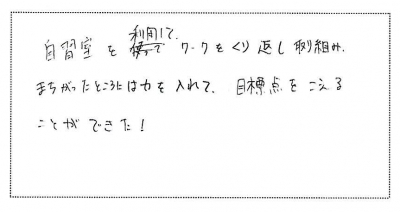 自習室を利用して、ワークをくり返し取組み、
まちがったところには力を入れて、目標点をこえる
ことができた！